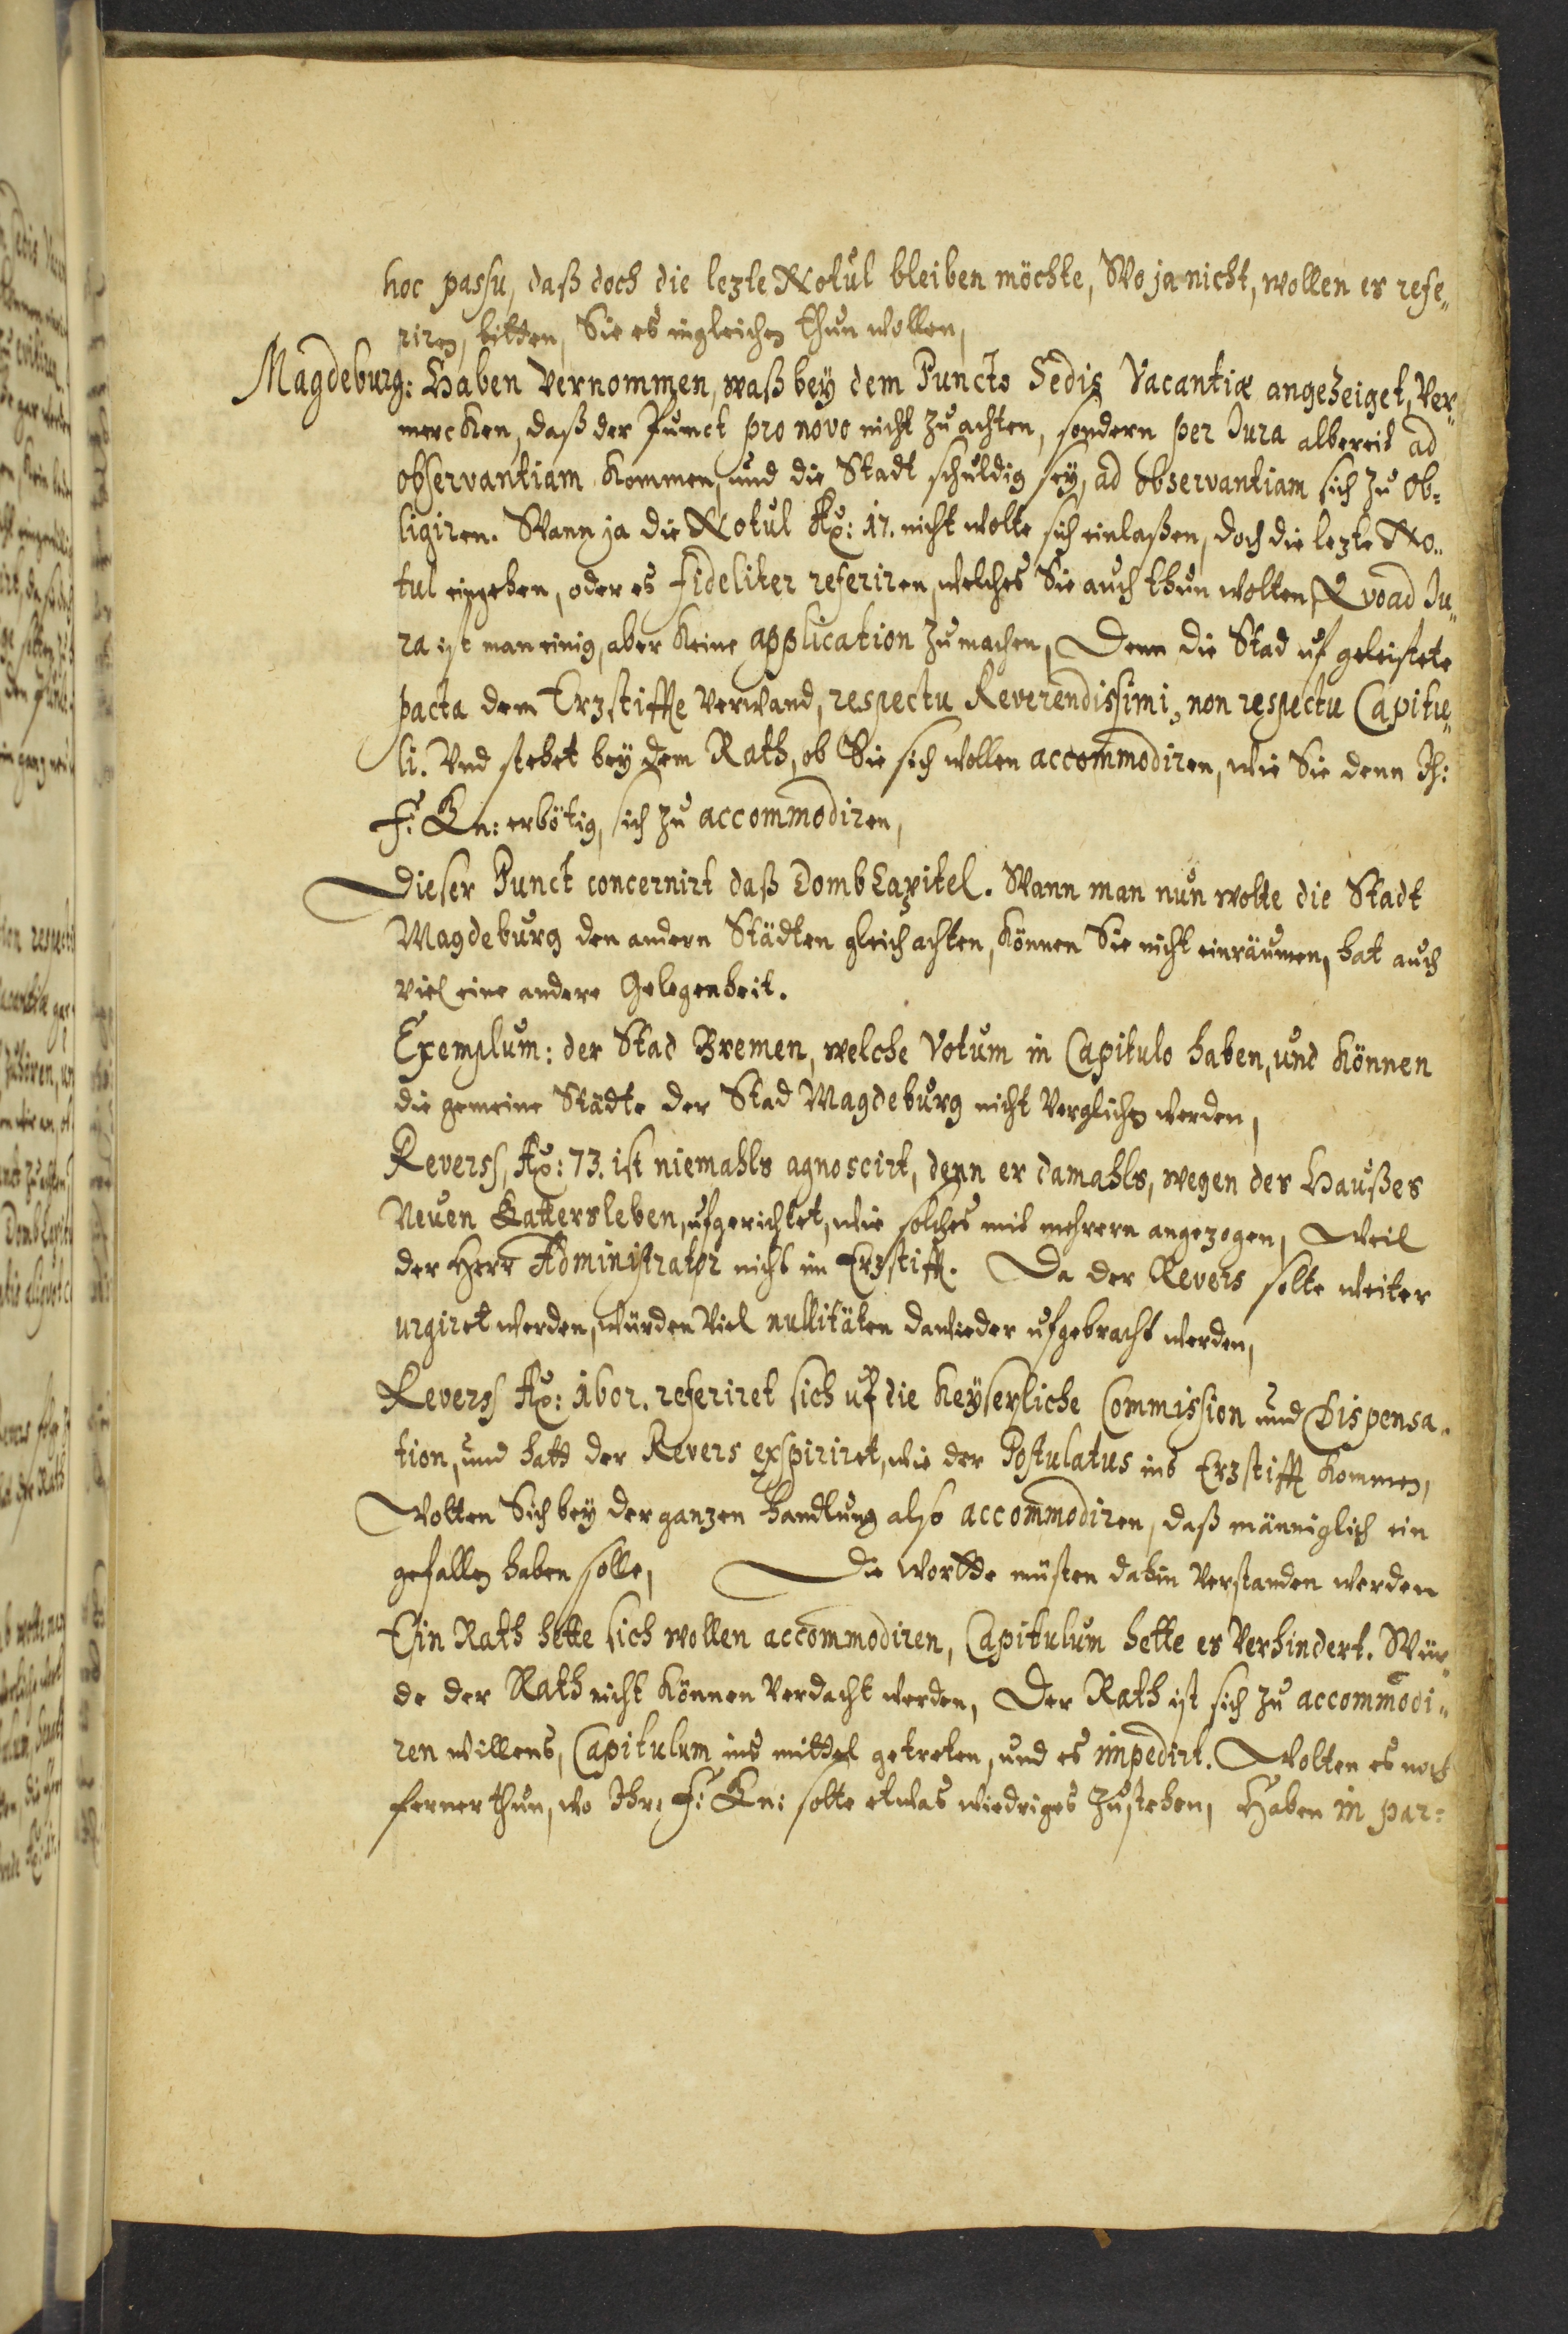 hoc passu, daß doch die lezte Notul bleiben möchte, Wo ja nicht, wollen es refe„
riren, bitten, Sie es ingleichen thun wollen,
Magdeburg: Haben vernommen, waß bey dem Puncto Sedis Vacantiæ angezeiget, Ver„
mercken, daß der Punct pro novo nicht zu achten, sondern per Jura albereit ad
observantiam kommen, und die Stadt schuldig sey, ad observantiam sich zu ob=
ligiren. Wann ja die Notul Ao: 17. nicht wolte sich einlaßen, doch die lezte No„
tul eingehen, oder es fideliter referiren, welches Sie auch thun wolten, Qvoad Ju„
ra ist man einig, aber keine application zu machen, Denn die Stad uf geleistete
pacta dem Erzstiffte verwand, respectu Reverendissimi, non respectu Capitu„
li. Vnd stehet bey dem Rath, ob Sie sich wollen accommodiren, wie Sie denn Ih:
F: Gn: erbötig, sich zu accommodiren,
Dieser Punct concernirt daß DombCapitel. Wann man nun wolte die Stadt
Magdeburg den andern Städten gleich achten, können Sie nicht einräumen, hat auch
viel eine andere Gelegenheit.
Exemplum: der Stad Bremen, welche Votum in Capitulo haben, und können
die gemeine Städte der Stad Magdeburg nicht verglichen werden,
Reverss, Ao: 73. ist niemahls agnoscirt, denn er damahls, wegen des Haußes
Neuen Gattersleben, ufgerichtet, wie solches mit mehrern angezogen, Weil
der Herr Administrator nicht im Erzstifft. Da der Revers solte weiter
urgiret werden, würden Viel nullitäten dawieder ufgebracht werden,
Reverss Ao: 1602. referiret sich uf die Keyserliche Commission und Dispensa„
tion, und hatt der Revers exspiriret, wie der Postulatus ins Erzstifft kommen,
Wolten Sich bey der ganzen Handlung also accommodiren, daß männiglich ein
gefallen haben solle, Die Wortte müsten dahin verstanden werden
Ein Rath hette sich wollen accommodiren, Capitulum hette es Verhindert. Wür„
de der Rath nicht können verdacht werden, Der Rath ist sich zu accommodi„
ren willens, Capitulum ins mittel getreten, und es impedirt. Wolten es noch
ferner thun, wo Ihr: F: Gn: solte etwas wiedriges zustehen, Haben in par=